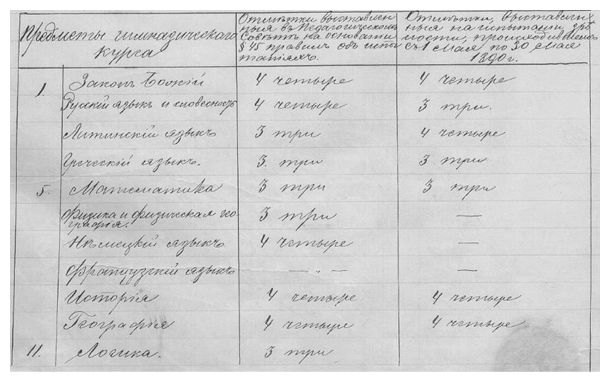 Предметы гимназическаго курса
Отмѣтки выставлен-
ныя въ Педагогическомъ
Совѣтѣ на основаніи
§ 45 правилъ объ испы-
танiяхъ.
Отмѣтки, выставлен-
ныя на испытаніи зрѣ-
лости, происходившемъ
съ 1 Мая по 30 Мая
1890 г.
1. Законъ Божій 4 четыре 4 четыре
Русскій языкъ и словесность 4 четыре 3 три.
Латинскій языкъ 3 три 4 четыре
Греческій языкъ. 3 три 3 три
5. Математика 3 три 3 три
Физика и физическая гео-
графія. 3 три —
Нѣмецкій языкъ 4 четыре —
Французскій языкъ — . — —
Исторія 4 четыре 4 четыре
Географія 4 четыре 4 четыре
11. Логика. 3 три